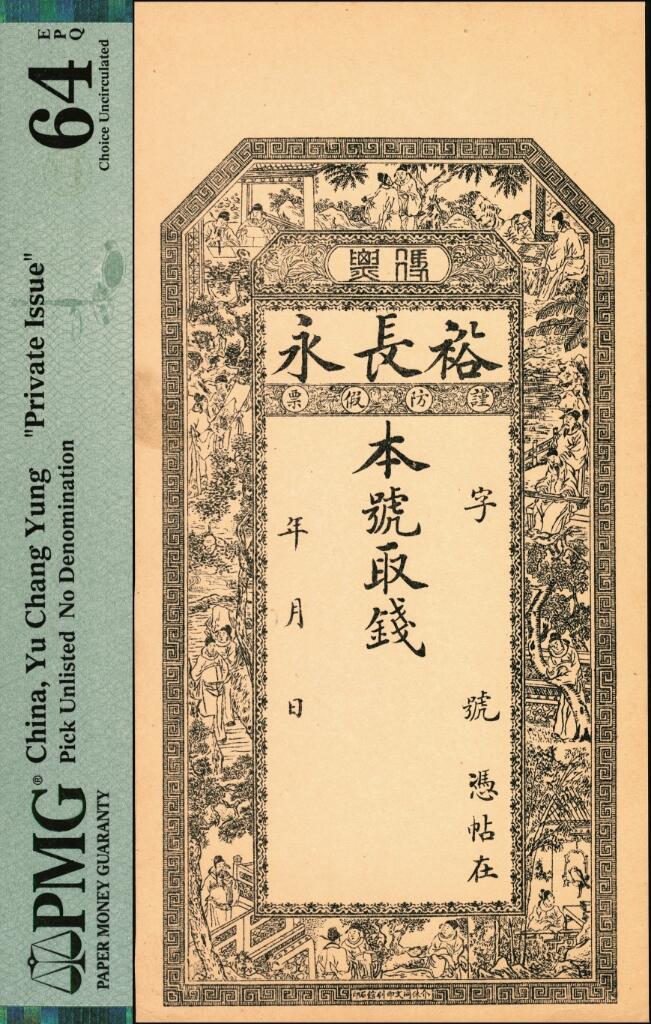 PMG®
PAPER MONEY GUARANTY
China, Yu Chang Yung "Private Issue"
Pick Unlisted No Denomination
64
EPQ
Choice Uncirculated
裕長永
謹防假票
字 號 憑帖在
本號取錢
年 月 日